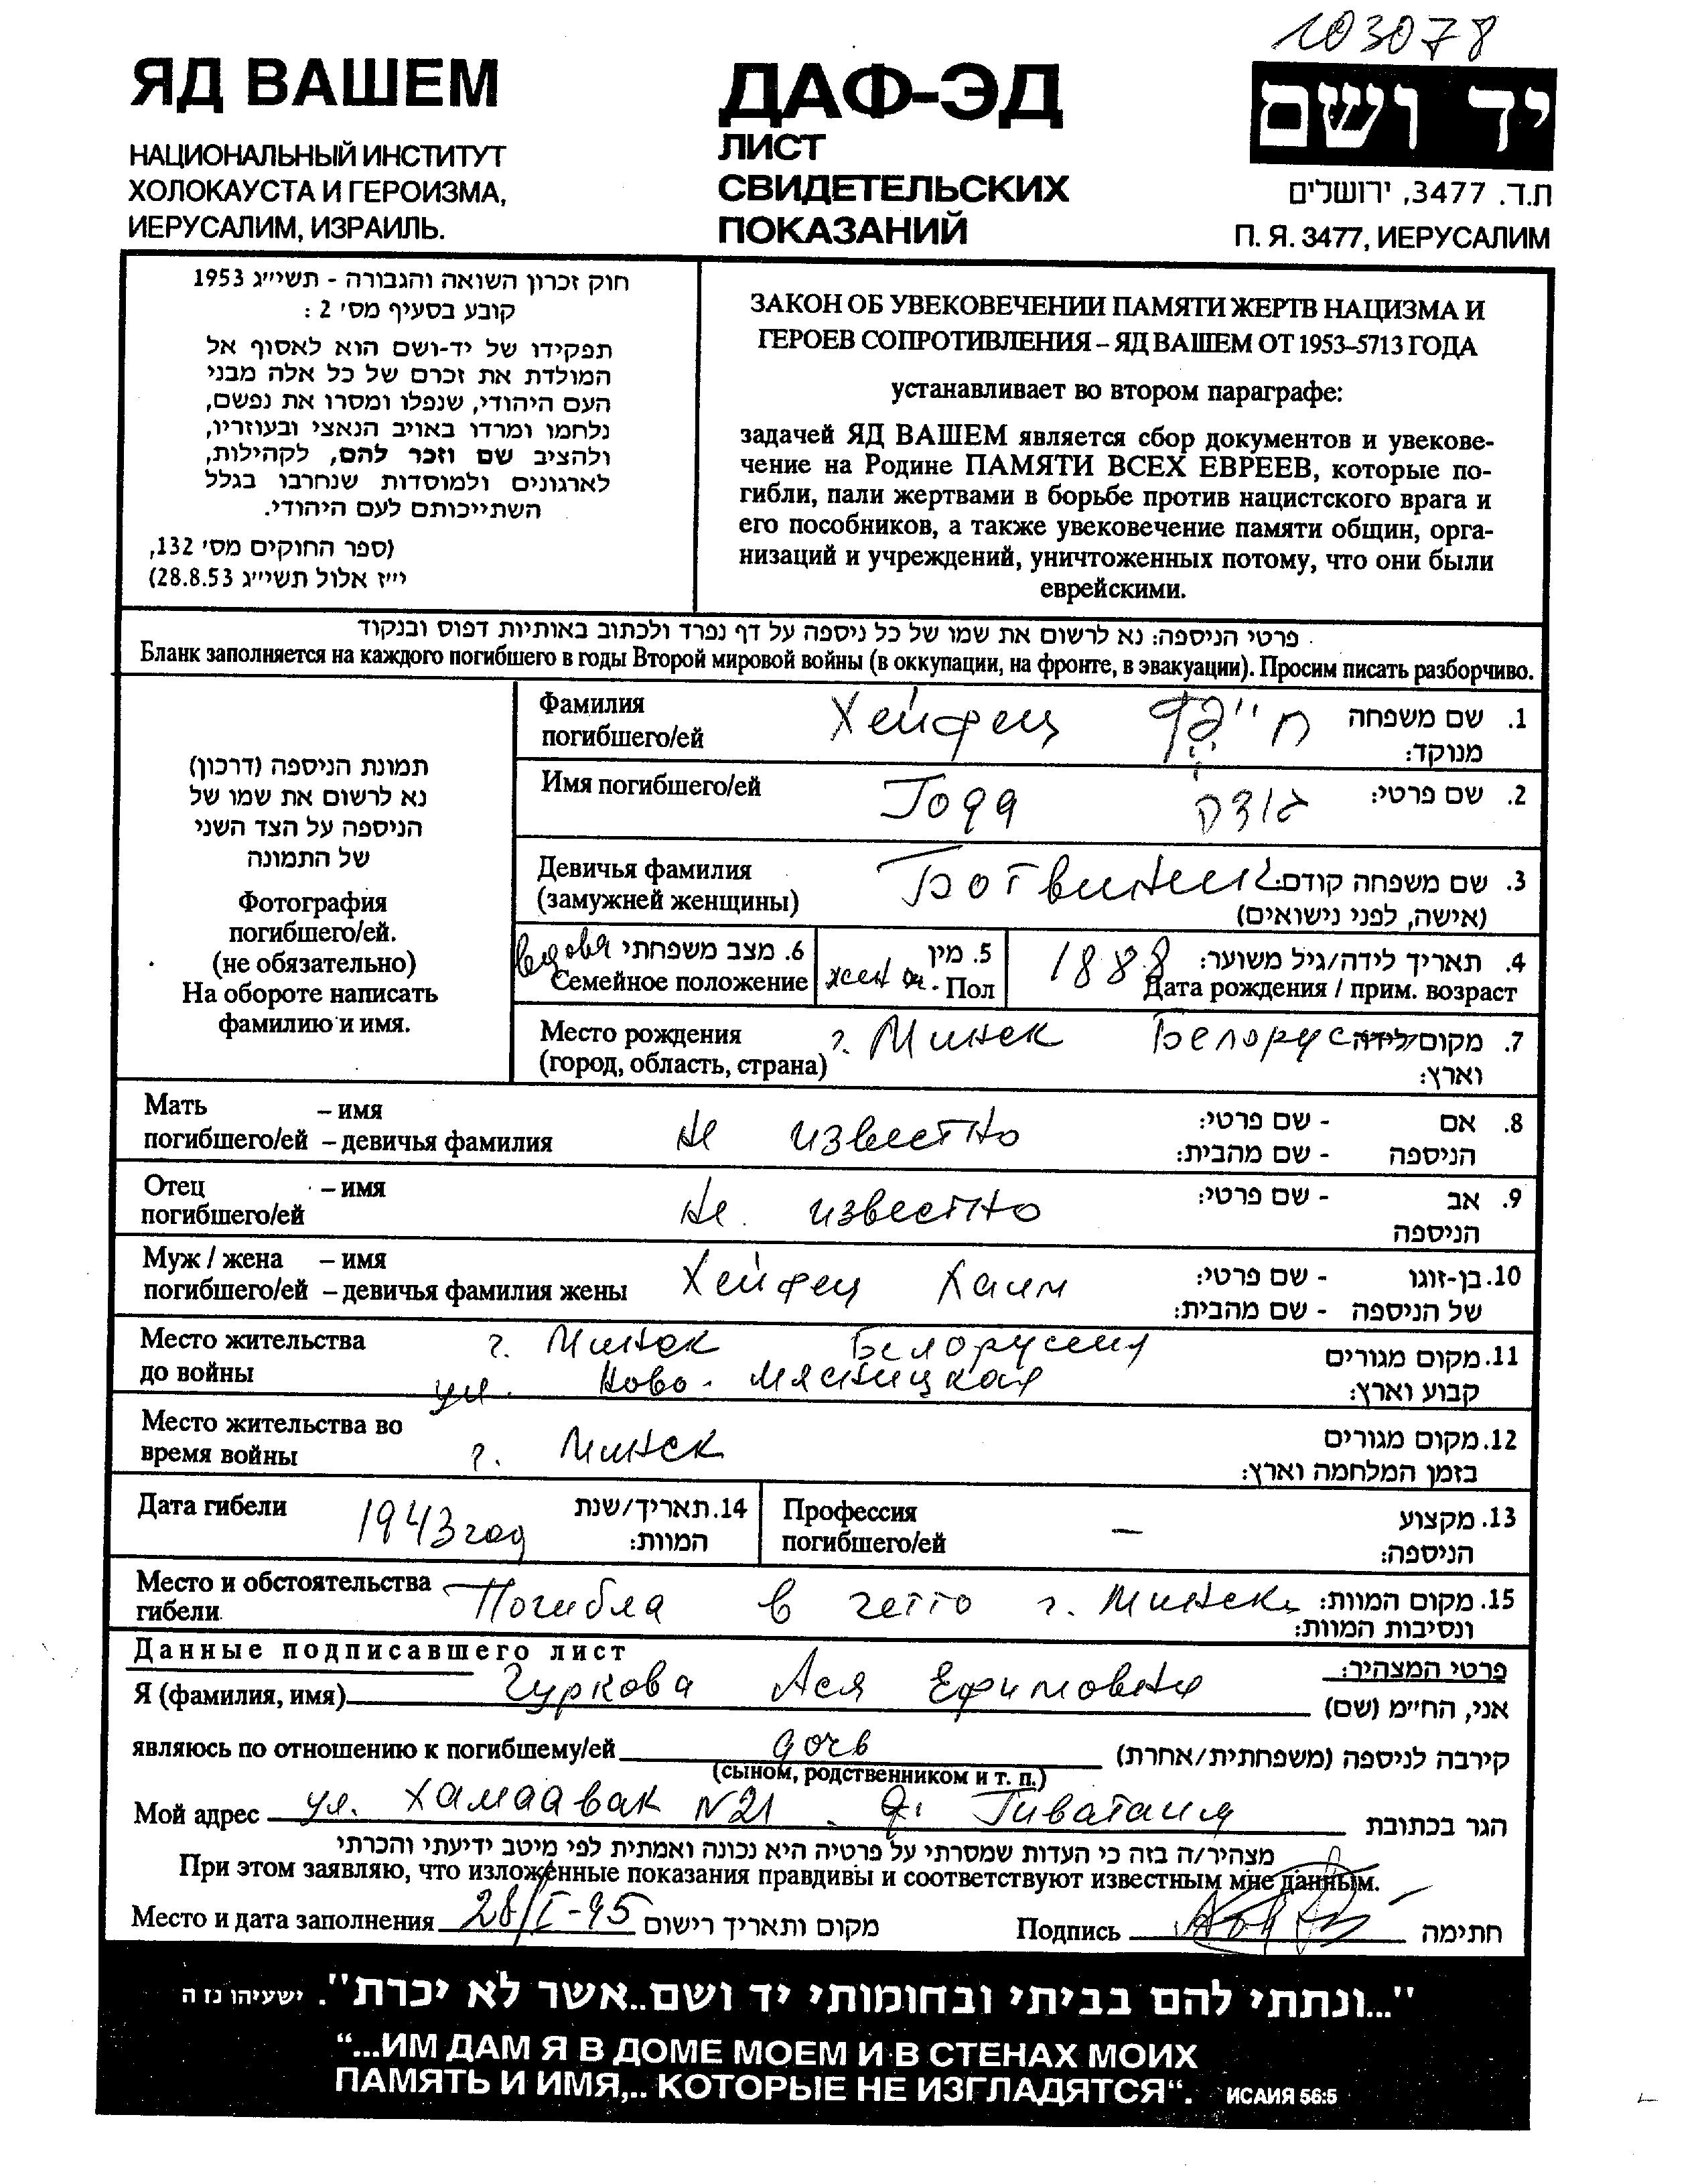 103078
ЯД ВАШЕМ
НАЦИОНАЛЬНЫЙ ИНСТИТУТ
ХОЛОКАУСТА И ГЕРОИЗМА,
ИЕРУСАЛИМ, ИЗРАИЛЬ.
ДАФ-ЭД
ЛИСТ
СВИДЕТЕЛЬСКИХ
ПОКАЗАНИЙ
יד ושם
ת.ד. 3477, ירושלים
П. Я. 3477, ИЕРУСАЛИМ
חוק זכרון השואה והגבורה - תשי״ג 1953
קובע בסעיף מס׳ 2 :
תפקידו של יד-ושם הוא לאסוף אל
המולדת את זכרם של כל אלה מבני
העם היהודי, שנפלו ומסרו את נפשם,
נלחמו ומרדו באויב הנאצי ובעוזריו,
ולהציב שם וזכר להם, לקהילות,
לארגונים ולמוסדות שנחרבו בגלל
השתייכותם לעם היהודי.
(ספר החוקים מס׳ 132,
י״ז אלול תשי״ג 28.8.53)
ЗАКОН ОБ УВЕКОВЕЧЕНИИ ПАМЯТИ ЖЕРТВ НАЦИЗМА И
ГЕРОЕВ СОПРОТИВЛЕНИЯ – ЯД ВАШЕМ ОТ 1953–5713 ГОДА
устанавливает во втором параграфе:
задачей ЯД ВАШЕМ является сбор документов и увекове-
чение на Родине ПАМЯТИ ВСЕХ ЕВРЕЕВ, которые по-
гибли, пали жертвами в борьбе против нацистского врага и
его пособников, а также увековечение памяти общин, орга-
низаций и учреждений, уничтоженных потому, что они были
еврейскими.
פרטי הניספה: נא לרשום את שמו של כל ניספה על דף נפרד ולכתוב באותיות דפוס ובנקוד
Бланк заполняется на каждого погибшего в годы Второй мировой войны (в оккупации, на фронте, в эвакуации). Просим писать разборчиво.
תמונת הניספה (דרכון)
נא לרשום את שמו של
הניספה על הצד השני
של התמונה
Фотография
погибшего/ей.
(не обязательно)
На обороте написать
фамилию и имя.
Фамилия Хейфец 1. שם משפחה
погибшего/ей מנוקד:
Имя погибшего/ей Года גודה 2. שם פרטי:
Девичья фамилия Ботвинник 3. שם משפחה קודם:
(замужней женщины) (אישה, לפני נישואים)
вдова 6. מצב משפחתי 5. מין 1888 4. תאריך לידה/גיל משוער:
Семейное положение Пол Дата рождения / прим. возраст
Место рождения г. Минск 7. מקום לידה
(город, область, страна) וארץ:
Мать – имя не известно 8. אם - שם פרטי:
погибшего/ей – девичья фамилия הניספה - שם מהבית:
Отец – имя не известно 9. אב - שם פרטי:
погибшего/ей הניספה
Муж / жена – имя Хейфец Хаим 10. בן-זוגו - שם פרטי:
погибшего/ей – девичья фамилия жены של הניספה - שם מהבית:
Место жительства г. Минск Белоруссия 11. מקום מגורים
до войны ул. Ново-Мясницкая קבוע וארץ:
Место жительства во г. Минск 12. מקום מגורים
время войны בזמן המלחמה וארץ:
Дата гибели 1943 год 14. תאריך/שנת Профессия – 13. מקצוע
המוות: погибшего/ей הניספה:
Место и обстоятельства Погибла в гетто г. Минска 15. מקום המוות:
гибели. ונסיבות המוות:
Данные подписавшего лист פרטי המצהיר:
Я (фамилия, имя) Гуркова Ася Ефимовна אני, הח״מ (שם)
являюсь по отношению к погибшему/ей дочь קירבה לניספה (משפחתית/אחרת)
(сыном, родственником и т. п.)
Мой адрес ул. Хамаавак N21 Гиватаим הגר בכתובת
מצהיר/ה בזה כי העדות שמסרתי על פרטיה היא נכונה ואמתית לפי מיטב ידיעתי והכרתי
При этом заявляю, что изложенные показания правдивы и соответствуют известным мне данным.
Место и дата заполнения 28/I-95 מקום ותאריך רישום Подпись חתימה
"...ונתתי להם בביתי ובחומותי יד ושם..אשר לא יכרת". ישעיהו נז ה
“...ИМ ДАМ Я В ДОМЕ МОЕМ И В СТЕНАХ МОИХ
ПАМЯТЬ И ИМЯ,.. КОТОРЫЕ НЕ ИЗГЛАДЯТСЯ“. ИСАИЯ 56:5